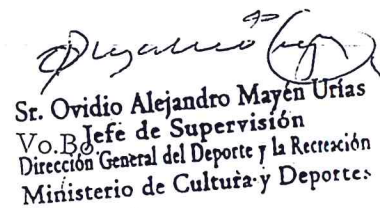 Sr. Ovidio Alejandro Mayén Urías
Vo.Bo. Jefe de Supervisión
Dirección General del Deporte y la Recreación
Ministerio de Cultura y Deportes